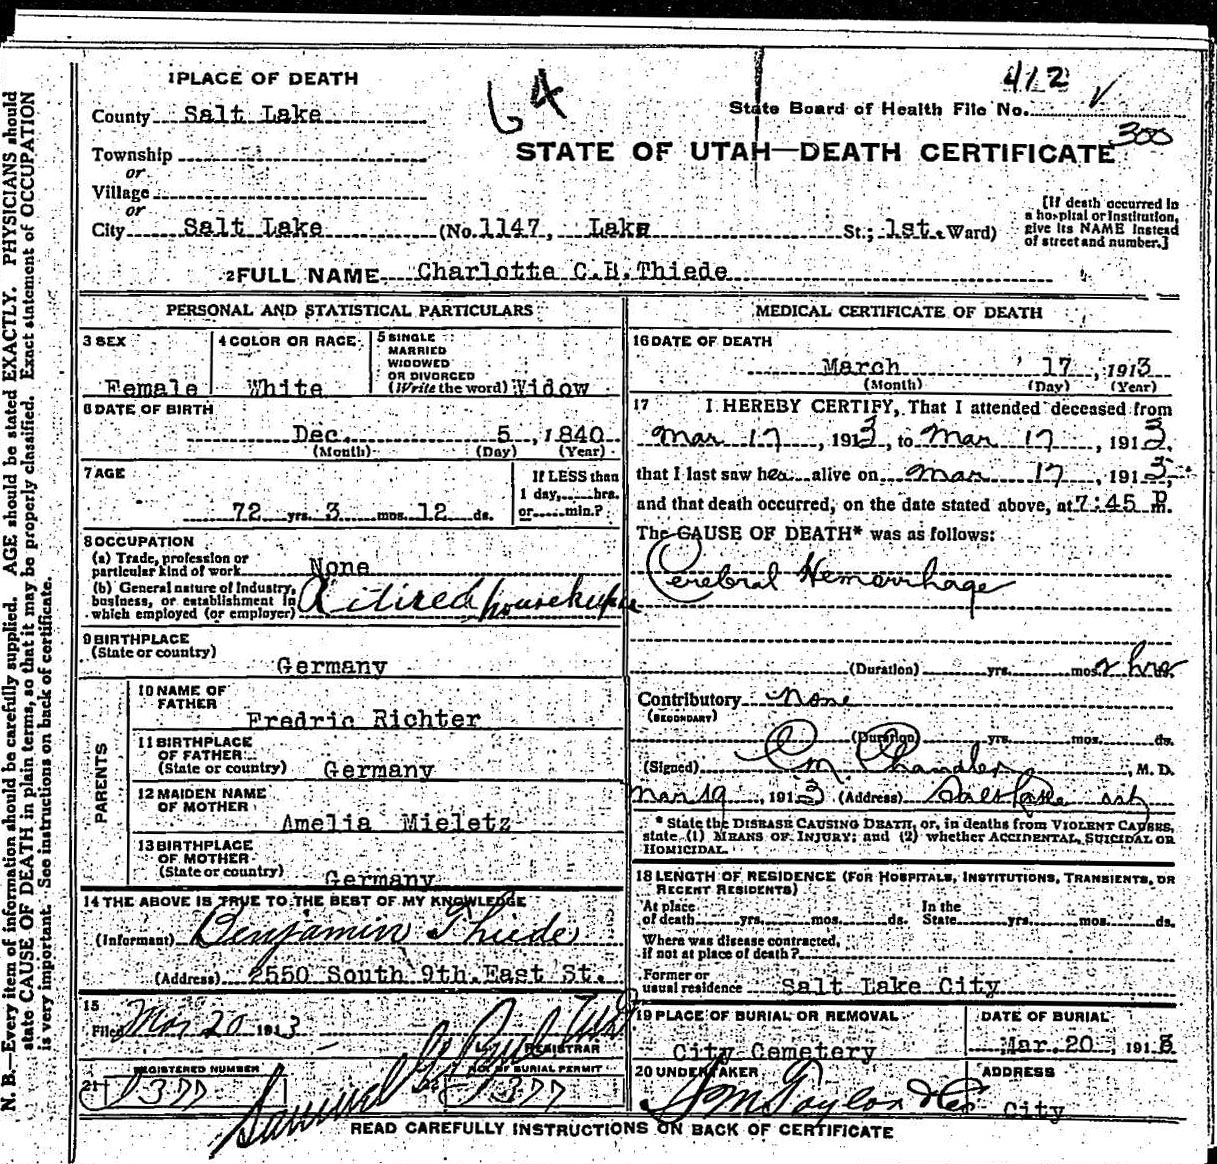 1 PLACE OF DEATH
County Salt Lake
Township
or
Village
or
City Salt Lake (No. 1147, Lake St.; 1st. Ward)
64
412
State Board of Health File No.
300
STATE OF UTAH—DEATH CERTIFICATE
[If death occurred in
a hospital or institution,
give its NAME instead
of street and number.]
2 FULL NAME Charlotte C.B.Thiede
PERSONAL AND STATISTICAL PARTICULARS
3 SEX
Female
4 COLOR OR RACE
White
5 SINGLE
MARRIED
WIDOWED
OR DIVORCED
(Write the word) Widow
6 DATE OF BIRTH
Dec. 5, 1840
(Month) (Day) (Year)
7 AGE
72 yrs. 3 mos. 12 ds.
If LESS than
1 day, hrs.
or min.?
8 OCCUPATION
(a) Trade, profession or
particular kind of work None
(b) General nature of Industry,
business, or establishment in
which employed (or employer) Retired housekeeper
9 BIRTHPLACE
(State or country)
Germany
PARENTS
10 NAME OF
FATHER
Fredric Richter
11 BIRTHPLACE
OF FATHER
(State or country) Germany
12 MAIDEN NAME
OF MOTHER
Amelia Mieletz
13 BIRTHPLACE
OF MOTHER
(State or country) Germany
14 THE ABOVE IS TRUE TO THE BEST OF MY KNOWLEDGE
(Informant) Benjamin Thiede
(Address) 2550 South 9th.East St.
15
Filed Mar 20 1913
REGISTRAR
REGISTERED NUMBER
NO. OF BURIAL PERMIT
21
Samuel G Paul
MEDICAL CERTIFICATE OF DEATH
16 DATE OF DEATH
March 17, 1913
(Month) (Day) (Year)
17 I HEREBY CERTIFY, That I attended deceased from
Mar 17, 1913, to Mar 17, 1913,
that I last saw her alive on Mar 17, 1913,
and that death occurred, on the date stated above, at 7:45 P. m.
The CAUSE OF DEATH* was as follows:
Cerebral Hemorrhage
(Duration) yrs. mos. 2 hrs ds.
Contributory none
(SECONDARY)
(Duration) yrs. mos. ds.
(Signed) C M Chandler, M. D.
Mar 19, 1913 (Address) Salt Lake city
* State the DISEASE CAUSING DEATH, or, in deaths from VIOLENT CAUSES,
state (1) MEANS OF INJURY; and (2) whether ACCIDENTAL, SUICIDAL OR
HOMICIDAL.
18 LENGTH OF RESIDENCE (FOR HOSPITALS, INSTITUTIONS, TRANSIENTS, OR
RECENT RESIDENTS)
At place In the
of death yrs. mos. ds. State yrs. mos. ds.
Where was disease contracted,
if not at place of death?
Former or
usual residence Salt Lake City
19 PLACE OF BURIAL OR REMOVAL
City Cemetery
DATE OF BURIAL
Mar. 20, 1913
20 UNDERTAKER
S M Taylor & Co
ADDRESS
City
READ CAREFULLY INSTRUCTIONS ON BACK OF CERTIFICATE
N. B.—Every item of information should be carefully supplied. AGE should be stated EXACTLY. PHYSICIANS should
state CAUSE OF DEATH in plain terms, so that it may be properly classified. Exact statement of OCCUPATION
is very important. See instructions on back of certificate.